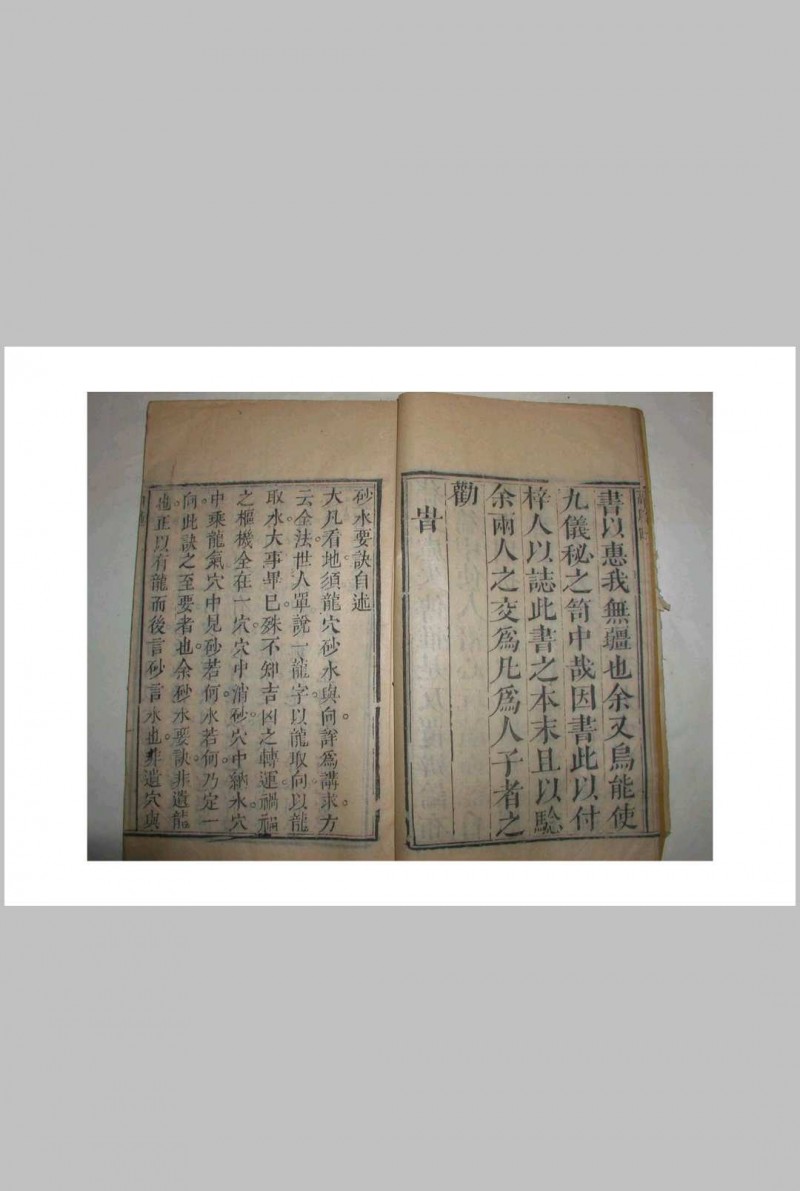 書以惠我無疆也余又烏能使
九儀秘之笥中哉因書此以付
梓人以誌此書之本末且以騐
余兩人之交爲凡爲人子者之
勸
旹
砂水要訣自述
大凡看地須龍穴砂水與向詳爲講求方
云全法世人單說一龍字以龍取向以龍
取水大事畢巳殊不知吉凶之轉運禍福
之樞機全在一穴穴中消砂穴中納水穴
中乘龍氣穴中見砂若何水若何乃定一
向此訣之至要者也余砂水要訣非遺龍
也正以有龍而後言砂言水也非遺穴與